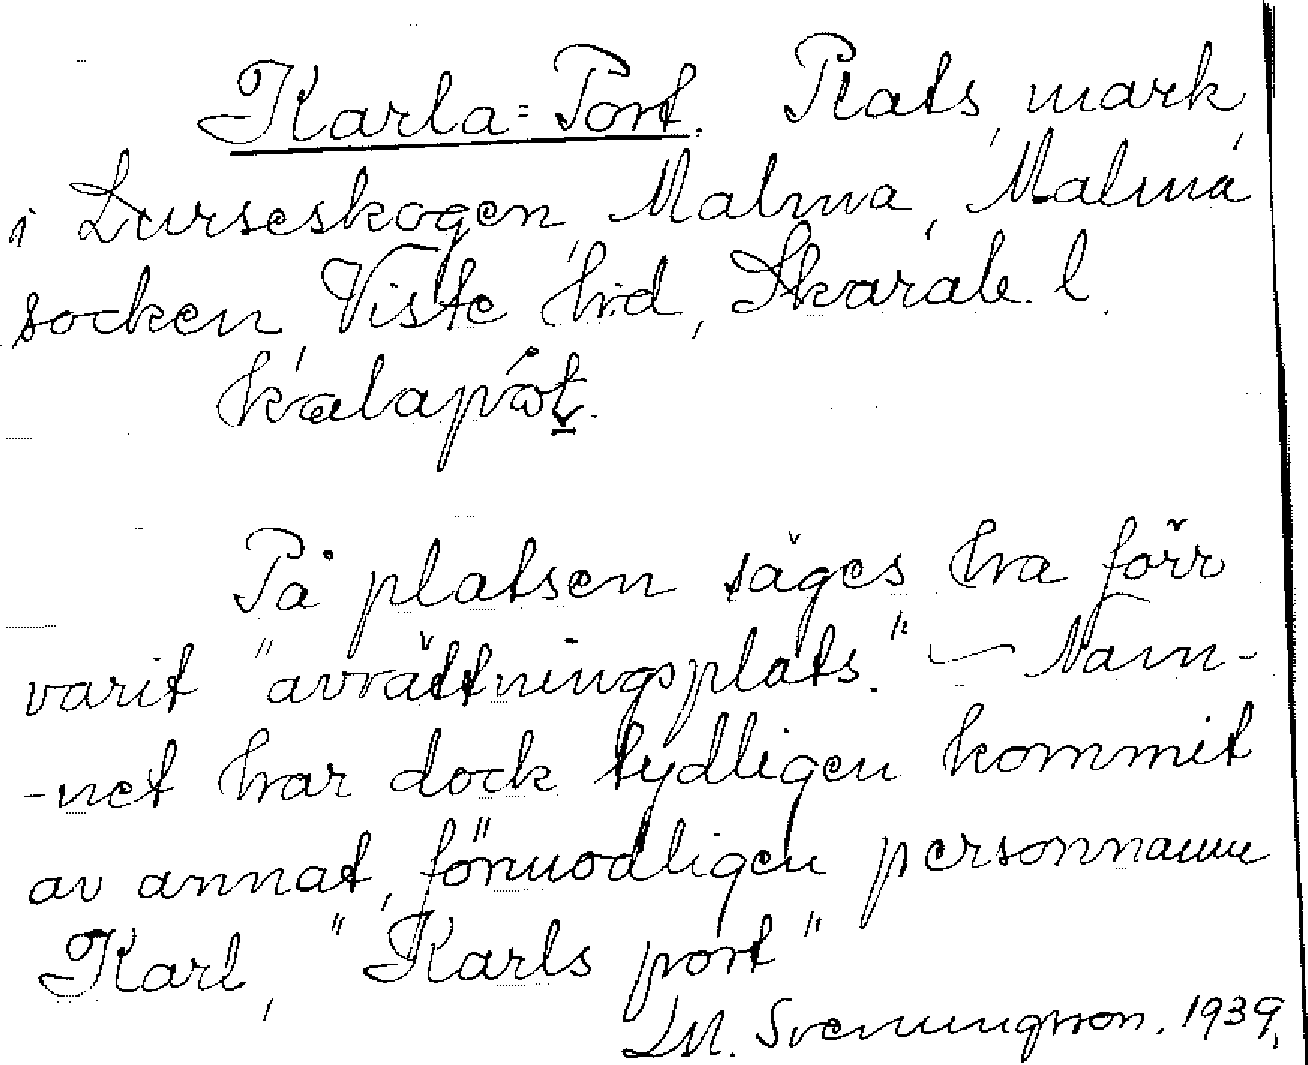 Karla-Port. Plats, mark
i Lurseskogen, Malma, Malma
socken, Viste hrd, Skarab. l.
kalapȯt.
På platsen säges ha förr
varit "avrättningsplats." — Nam-
-net har dock tydligen kommit
av annat, förmodligen personnamn
Karl, "Karls port"
Svenungsson. 1939.